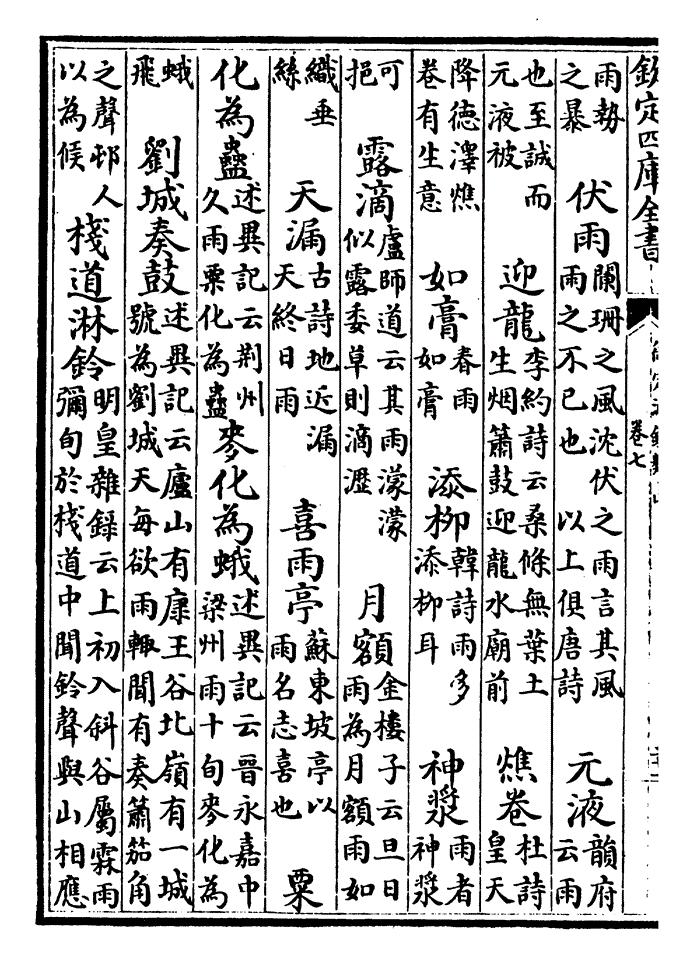 欽定四庫全書
卷七
雨勢之暴 伏雨 闌珊之風沈伏之雨言其風雨之不已也 以上俱唐詩 元液 韻府云雨
也至誠而元液被 迎龍 李約詩云桑條無葉土生烟簫鼓迎龍水廟前 燋卷 杜詩皇天
降德澤燋卷有生意 如膏 春雨如膏 添柳 韓詩雨多添柳耳 神漿 雨者神漿
可挹 露滴 盧師道云其雨濛濛似露委草則滴瀝 月額 金樓子云旦日雨為月額雨如
織垂絲 天漏 古詩地近漏天終日雨 喜雨亭 蘇東坡亭以雨名志喜也 粟
化為蠱 述異記云荆州久雨粟化為蠱 麥化為蛾 述異記云晉永嘉中梁州雨十旬麥化為
蛾飛 劉城奏鼓 述異記云廬山有康王谷北嶺有一城號為劉城天每欲雨輙聞有奏簫笳角
之聲邨人以為候 棧道淋鈴 明皇雜録云上初入斜谷屬霖雨彌旬於棧道中聞鈴聲與山相應